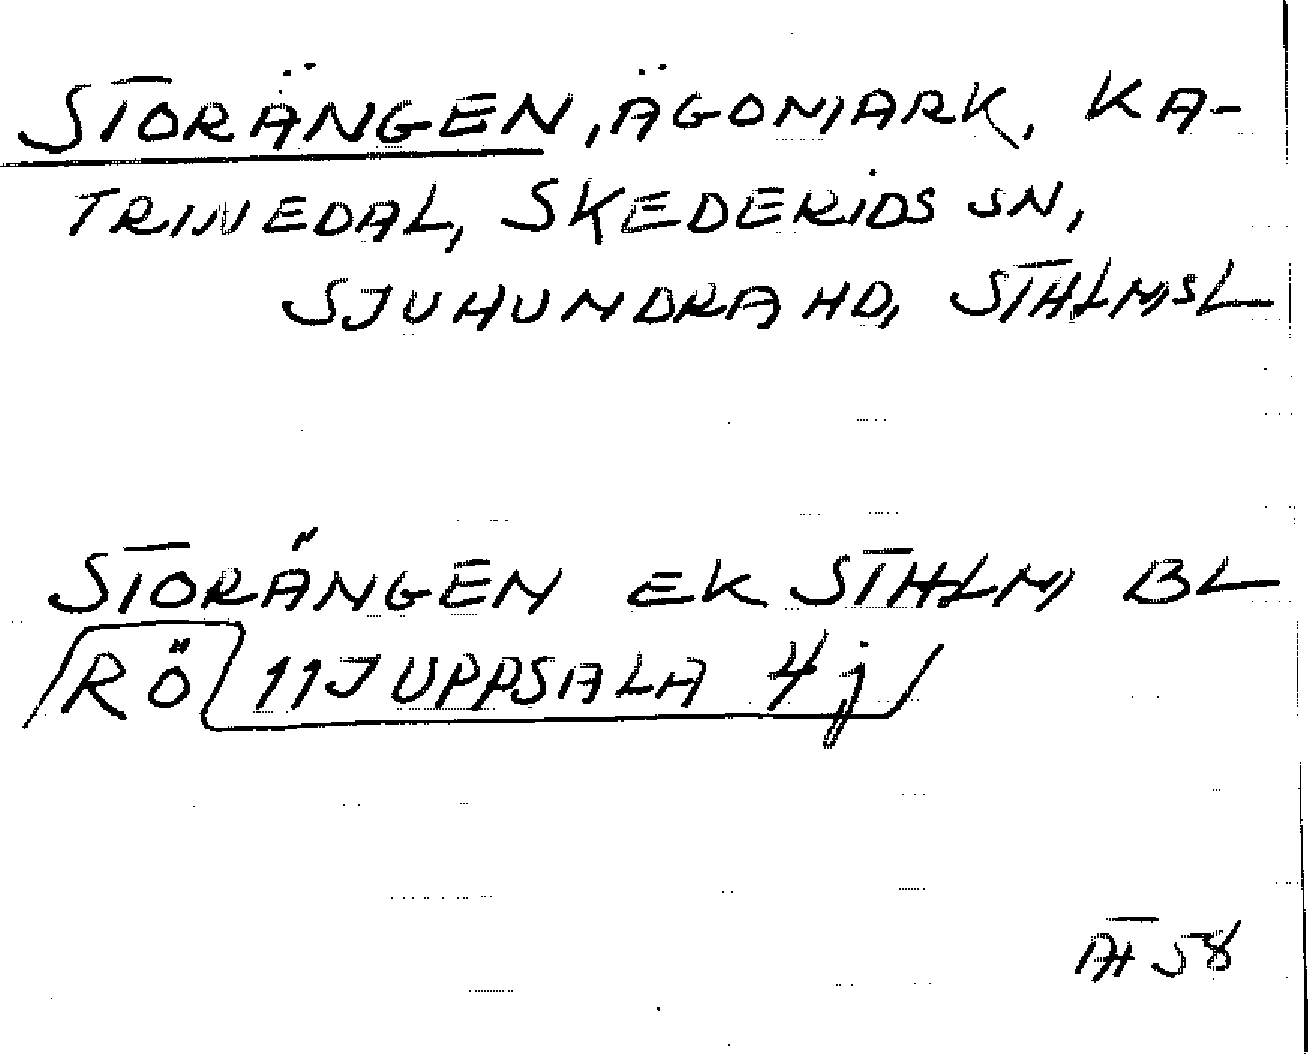 STORÄNGEN, ÄGOMARK, KA-
TRINEDAL, SKEDERIDS SN,
SJUHUNDRA HD, STHLMSL
STORÄNGEN EK STHLM BL
RÖ 11J UPPSALA 4j
AT 58